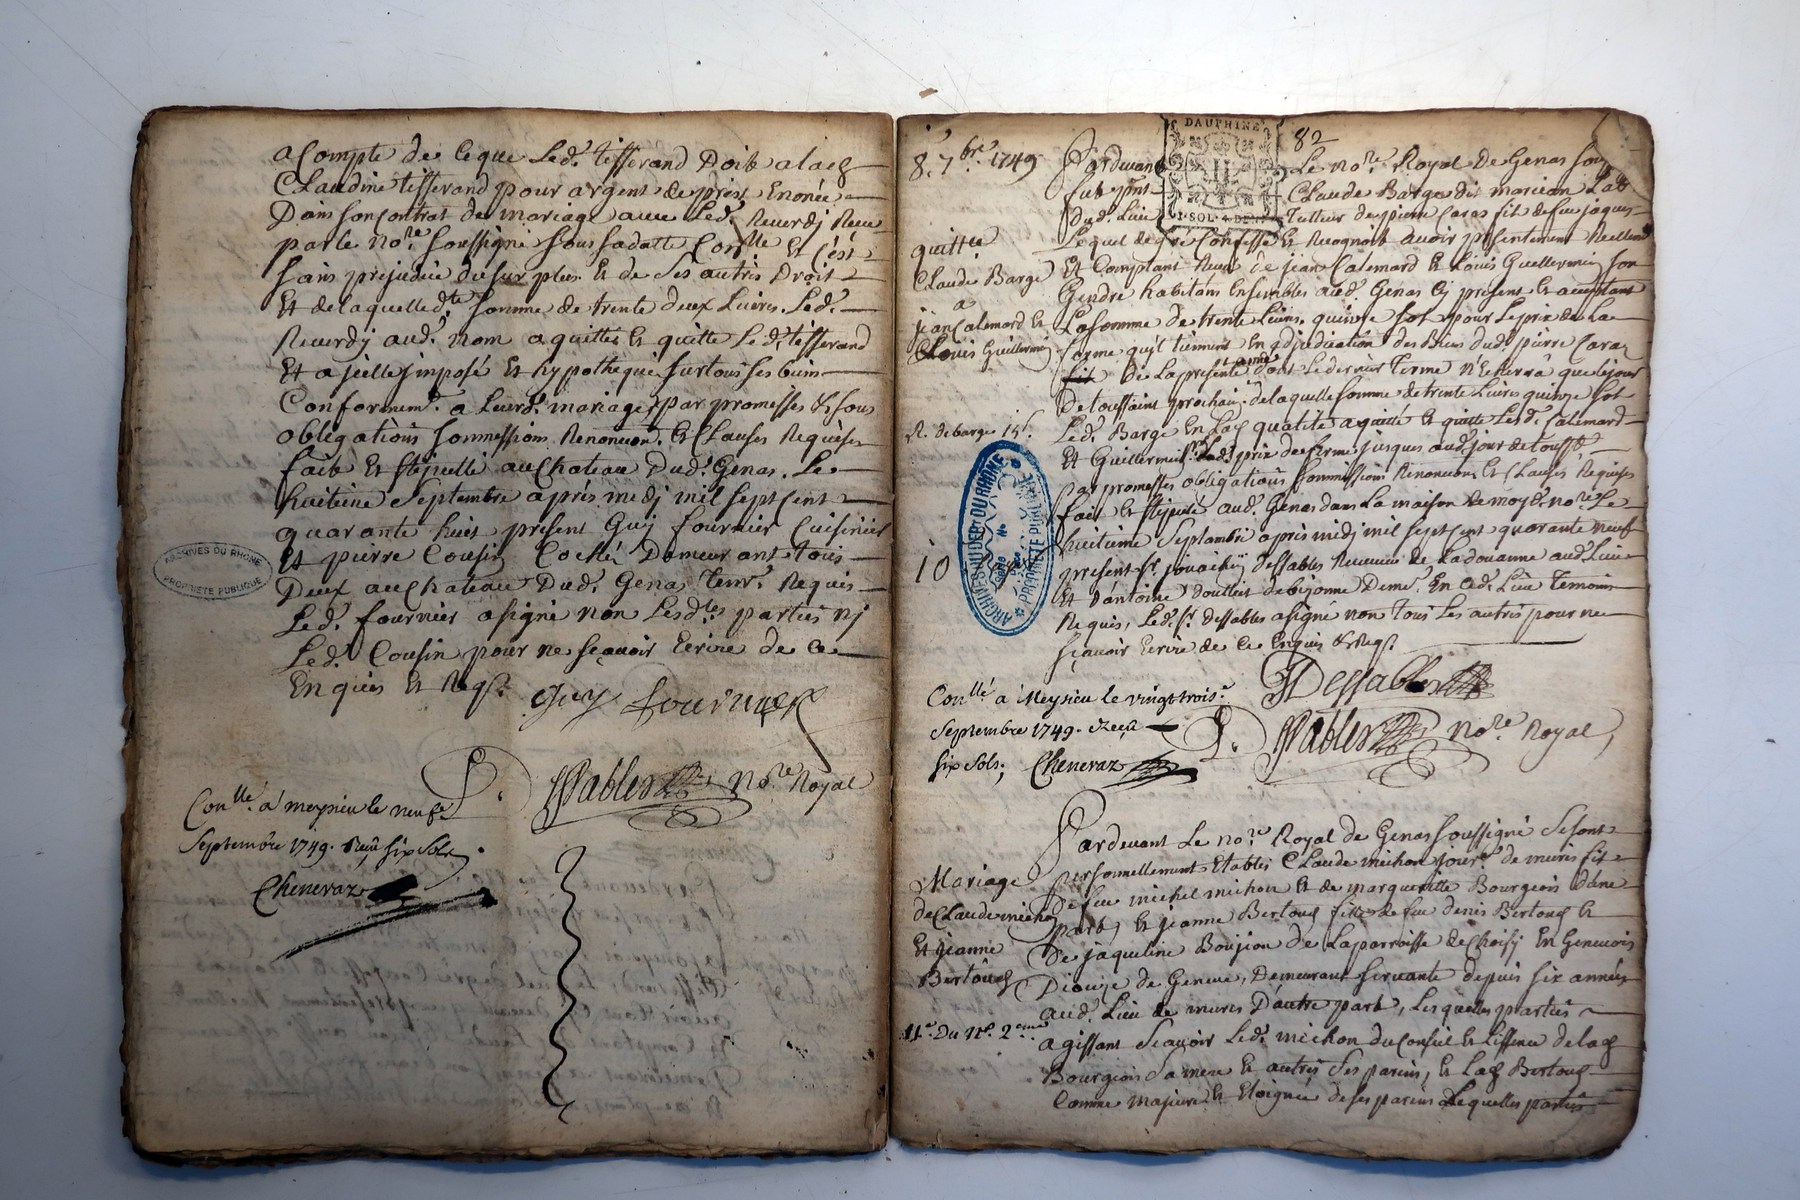 acompte de ceque Led.t tisserand Doib alad
Claudine tisserand pour argent de prix Enonée
Dans son contrat de mariage avec Led.t Reverdj Receu
par le No.re soussigné sous sadatte Con.llé Et C'ést
sans prejudice du sur plus Et de ses autres Droits
Et de laquelled.te somme de trente deux Livres. Led.t
Reverdj aud.t nom a quitté Et quitte Led.t tisserand
Et a jcelle jmposé Et hypothequé sur tous ses biens
Conformem.t a Leurd.t mariage, par promesses & sous
obligations sommissions Renoncions. Et Clauses Requises
fait Et stipullé au Chateau Dud.t Genas. Le
huitieme Septembre aprés midj mil sept Cent
quarante huit present Guy fournier Cuisinier
Et pierre Cousin Coché Demeurant tous
Deux au Chateau Dud.t Genas Tem.s Requis
Led.t fournier a signé non Lesd.tes parties nj
Led.t Cousin pour ne sçavoir Ecrire de ce
Enquis Et Req.s
guy fournier
D. No.re Royal
Con.llé á meysieu le neufe
Septembre 1749. Reçu six Sols.
Cheneraz
ARCHIVES DU RHONE
PROPRIETE PUBLIQUE
82
DAUPHINÉ
1·SOL·4·DEN
8. 7.bre 1749
Pardevant Le no.re Royal de Genas sous
Claude Barge dit marion Lab
Dud. Lieu Tutteur de pierre Caraz fils de feu jaques
Lequel de gré Confesse Et Recognoit avoir presentement Reellem
Et Comptant Receu de jean Calemard Et Louis Guillermin son
Gendre habitans Ensembles aud.t Genas Cy present Et acceptant
La somme de trente Livres quinze sols pour Le prix de La
ferme qu'il tiennent En adjudication des Biens dud.t pierre Caraz
De La presente année dont Le dernier Terme n'Echerra que le jour
De toussaint prochain. de laquelle somme de trente Livres quinze sols
Led.t Barge En Lad qualité a quitté Et quitte Lesd.t Calemard
Et Guillermin Dud.t prix de ferme jusques aud.t jour de touss.t
par promesses obligations sommissions Renoncions. Et Clauses Requises
fait Et stipulé aud.t Genas dans La maison de moyd.t no.re Le
huitieme Septembre aprés midj mil sept Cent quarante neuf
present S.r Dessables Receveur de La douanne aud.t Lieu
Et Dem.t En ced.t Lieu Temoins
Requis, Led.t S.r Dessables a signé non tous Les autres pour ne
sçavoir Ecrire de ce Enquis & Req.s
quitte
Claude Barge
a
jean Calemard Et
Louis Guillermin
R. de barge 15 s.
10
ARCHIVES DU DEP.T DU RHONE
PROPRIETE PUBLIQUE
Dessables
D. No.re Royal
Con.llé á Meysieu le vingt trois.e
Septembre 1749. Reçu
six sols,
Cheneraz
Mariage
de Claude michon
Et jeanne
Pardevant Le no.re Royal de Genas soussigné se sont
personnellement Etablis Claude michon de mures fils
de feu michel michon Et de margueritte Bourgeois dúne
part, Et jeanne fille de feu denis Et
de jaqueline Boujion de La parroisse de Choisy En Genevois
Dioceze de Geneve, Demeurant servante depuis six années
aud. Lieu de mures D'autre part, Lesquelles parties
agissant sçavoir Led.t michon du Conseil Et Lissence de lad
Bourgeois sa mere & autres ses parens, Et Lad
Comme majeure Et Eloignée de ses parens Lesquelles parties